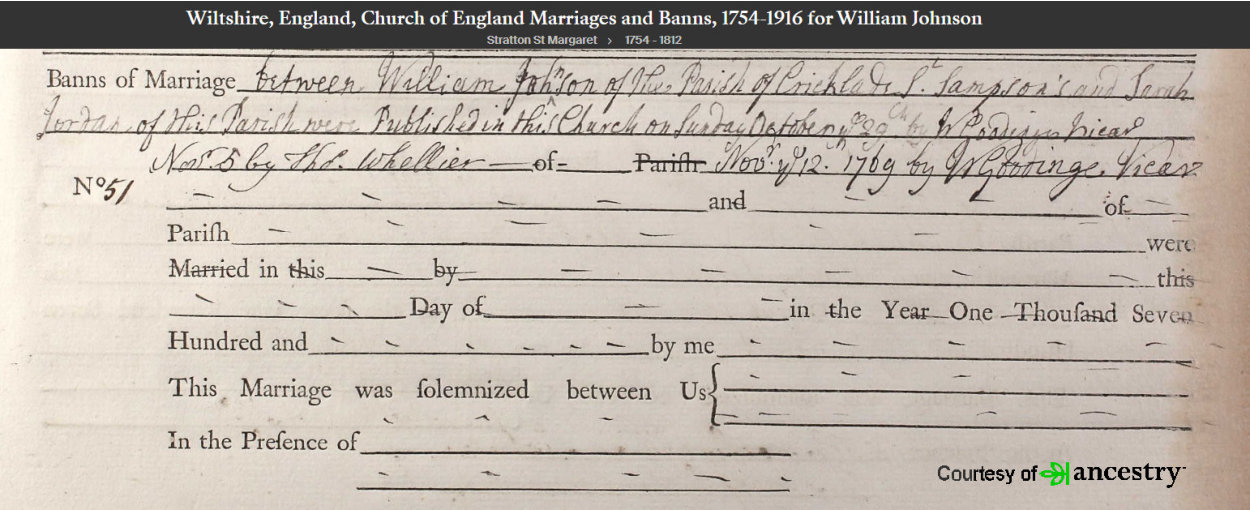 Wiltshire, England, Church of England Marriages and Banns, 1754-1916 for William Johnson
Stratton St Margaret > 1754 - 1812
Banns of Marriage between William Johnson of the Parish of Cricklade St. Sampson's and Sarah
Jordan of this Parish were Published in this Church on Sunday October ye 29th by W Gooding Vicar
Novr. 5 by Thos. Whellier of Pariſh Novr. ye 12. 1769 by W Vicar
No 51
and of
Pariſh were
Married in this by this
Day of in the Year One Thouſand Seven
Hundred and by me
This Marriage was ſolemnized between Us
In the Preſence of
Courtesy of ancestry